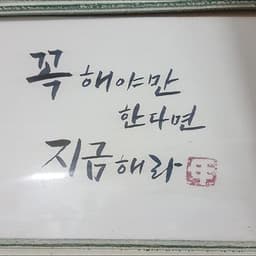 꼭 해야만
한다면
지금해라